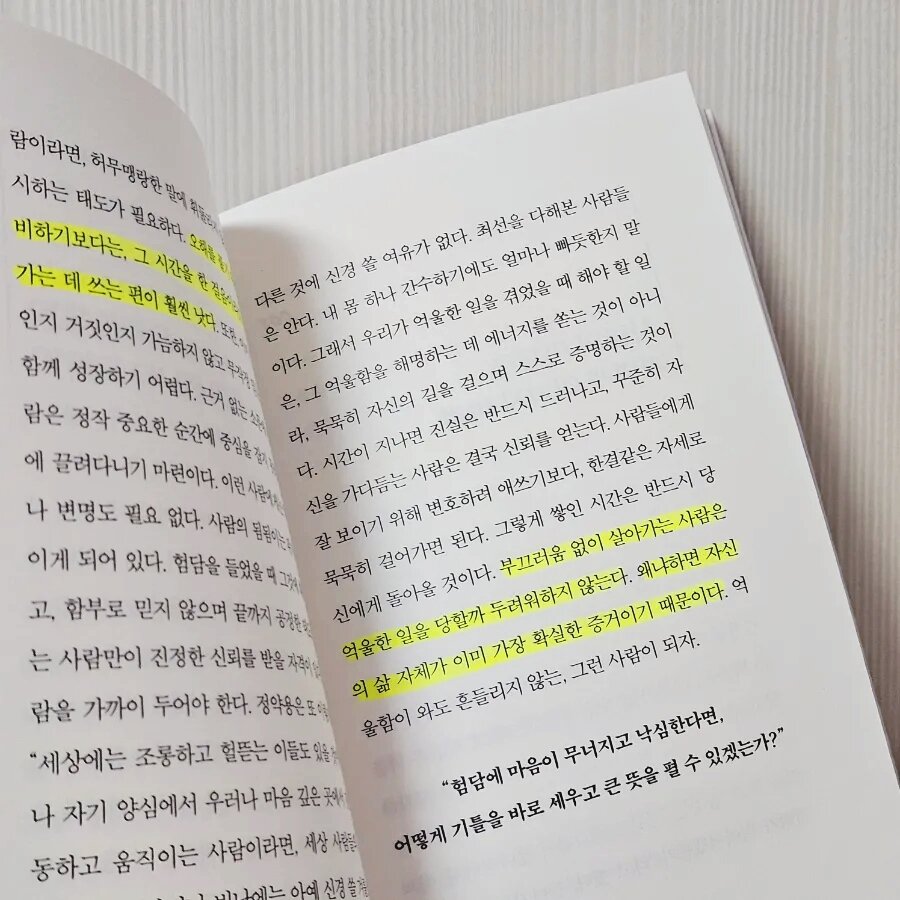 람이라면, 허무맹랑한 말에
시하는 태도가 필요하다. 오해를
비하기보다는, 그 시간을 한 걸음
가는 데 쓰는 편이 훨씬 낫다. 또한,
인지 거짓인지 가늠하지 않고
함께 성장하기 어렵다. 근거 없는
람은 정작 중요한 순간에 중심을
에 끌려다니기 마련이다. 이런 사람에
나 변명도 필요 없다. 사람의 됨됨이는
이게 되어 있다. 험담을 들었을 때
고, 함부로 믿지 않으며 끝까지
는 사람만이 진정한 신뢰를 받을 자격이
람을 가까이 두어야 한다. 정약용은 또
“세상에는 조롱하고 헐뜯는 이들도 있을
나 자기 양심에서 우러나 마음 깊은 곳에서
동하고 움직이는 사람이라면, 세상 사람들
비난에는 아예 신경 쓸
다른 것에 신경 쓸 여유가 없다. 최선을 다해본 사람들
은 안다. 내 몸 하나 간수하기에도 얼마나 빠듯한지 말
이다. 그래서 우리가 억울한 일을 겪었을 때 해야 할 일
은, 그 억울함을 해명하는 데 에너지를 쏟는 것이 아니
라, 묵묵히 자신의 길을 걸으며 스스로 증명하는 것이
다. 시간이 지나면 진실은 반드시 드러나고, 꾸준히 자
신을 가다듬는 사람은 결국 신뢰를 얻는다. 사람들에게
잘 보이기 위해 변호하려 애쓰기보다, 한결같은 자세로
묵묵히 걸어가면 된다. 그렇게 쌓인 시간은 반드시 당
신에게 돌아올 것이다. 부끄러움 없이 살아가는 사람은
억울한 일을 당할까 두려워하지 않는다. 왜냐하면 자신
의 삶 자체가 이미 가장 확실한 증거이기 때문이다. 억
울함이 와도 흔들리지 않는, 그런 사람이 되자.
“험담에 마음이 무너지고 낙심한다면,
어떻게 기틀을 바로 세우고 큰 뜻을 펼 수 있겠는가?”